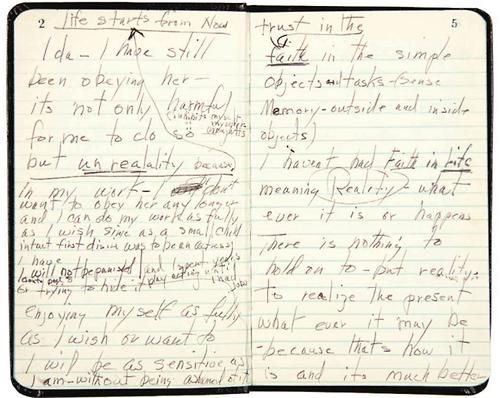 2 Life starts from Now
Ida - I have still
been obeying her -
its not only harmful
for me to do so
but unreality because
In my work - I don't
want to obey her any longer
and I can do my work as fully
as I wish since as a small child
intact first desire was to be an actress
I have
I will not be punished and I spent years
or trying to hide it play acting until I had
enjoying myself as fully
as I wish or want to
I will be as sensitive as
I am - without being ashamed of it
5
trust in the
faith in the simple
objects and tasks - (sense
Memory - outside and inside
objects)
I havent had Faith in Life
meaning Reality - what
ever it is or happens
There is nothing to
hold on to - but reality -
to realize the present
what ever it may be
- because thats how it
is and its much better